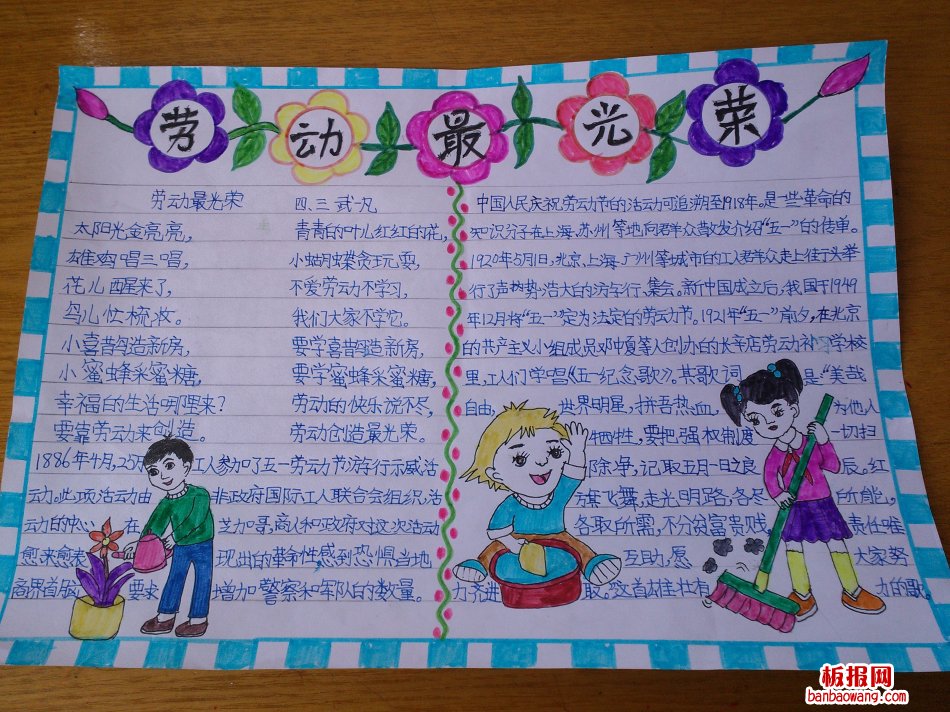 劳动最光荣
劳动最光荣
太阳光金亮亮，
雄鸡唱三唱，
花儿醒来了，
鸟儿忙梳妆。
小喜鹊造新房，
小蜜蜂采蜜糖，
幸福的生活哪里来？
要靠劳动来创造。
青青的叶儿红红的花，
小蝴蝶贪玩耍，
不爱劳动不学习，
我们大家不学它。
要学喜鹊造新房，
要学蜜蜂采蜜糖，
劳动的快乐说不尽，
劳动创造最光荣。
1886年4月，25万 工人参加了五一劳动节游行示威活
动。此项活动由 非政府国际工人联合会组织，活
动的中心 在 芝加哥，商人和政府对这次活动
愈来愈表 现出的革命性，感到恐惧，当地
商界首脑 要求 增加警察和军队的数量。
中国人民庆祝劳动节的活动可追溯至1918年。是一些革命的
知识分子在上海、苏州等地向群众散发介绍“五一”的传单。
1920年5月1日，北京、上海、广州等城市的工人群众走上街头举
行了声势浩大的游行、集会。新中国成立后，我国于1949
年12月将“五一”定为法定的劳动节。1921年“五一”前夕，在北京
的共产主义小组成员邓中夏等人创办的长辛店劳动补习学校
里，工人们学唱《五一纪念歌》。其歌词 是：“美哉
自由， 世界明星，拼吾热血， 为他人
牺牲，要把强权制度 一切扫
除净，记取五月一日之良 辰。红
旗飞舞，走光明路，各尽 所能，
各取所需，不分贫富贵贱 责任唯
互助，愿 大家努
力齐进 取。这首雄壮有 力的歌。
板报网
banbaowang.com